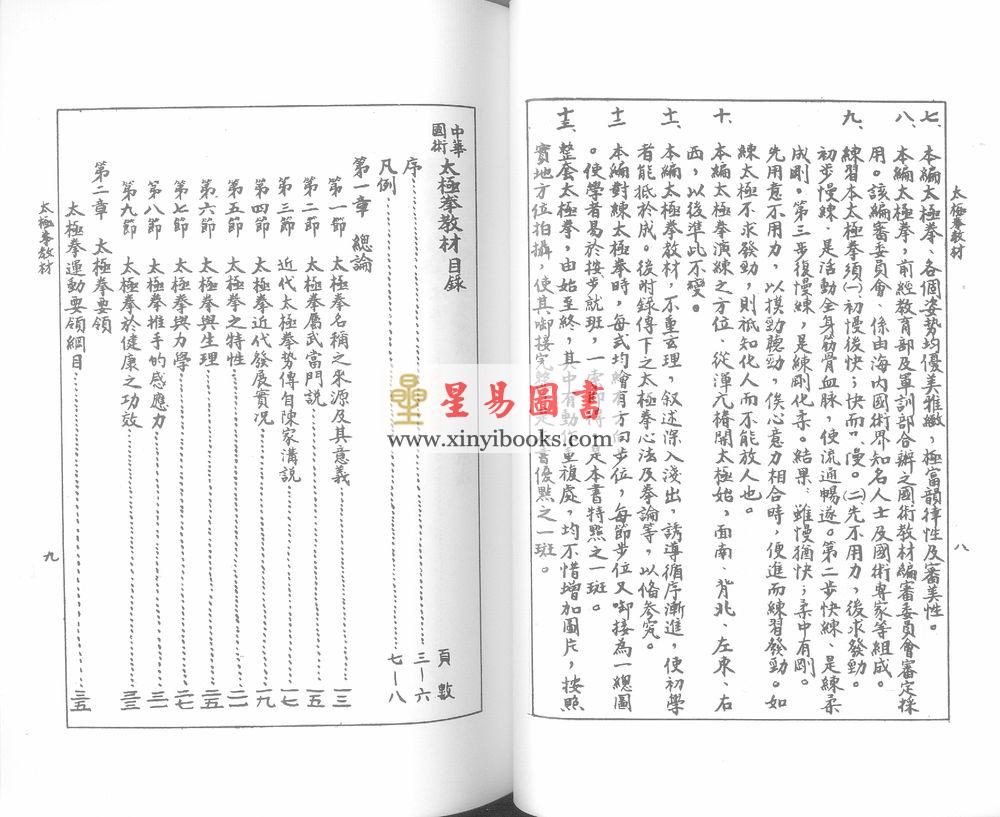 太極拳教材
八
七、本編太極拳、各個姿勢均優美雅緻，極富韻律性及審美性。
八、本編太極拳，前經教育部及軍訓部合辦之國術教材編審委員會審定採
用。該編審委員會、係由海內國術界知名人士及國術專家等組成。
九、練習本太極拳須㈠初慢後快；快而慢。㈡先不用力，後求發勁。
初步慢練、是活動全身筋骨血脉，使流通暢遂。第二步快練、是練柔
成剛。第三步復慢練，是練剛化柔。結果、雖慢猶快；柔中有剛。
先用意不用力，以摸勁聽勁，俟心意力相合時，便進而練習發勁。如
練太極不求發勁，則祇知化人而不能放人也。
十、本編太極拳演練之方位、從渾元樁開太極始，面南、背北、左東、右
西，以後準此不變。
十一、本編太極拳教材，不重玄理，叙述深入淺出，誘導循序漸進，使初學
者能抵於成。後附錄傳下之太極拳心法及拳論等，以俻參究。
十二、本編對練太極拳時，每式均繪有方向步位，每節步位又啣接為一總圖
。使學者易於按步就班，一是本書特點之一斑。
十三、整套太極拳，由始至終，其中有動重複處，均不惜增加圖片，按照
實地方位拍攝，使其啣接完書優點之一斑。
中華國術太極拳教材目錄
頁數
序 三－六
凡例 七－八
第一章 總論
第一節 太極拳名稱之來源及其意義 一三
第二節 太極拳屬武當門說 一五
第三節 近代太極拳勢傳自陳家溝說 一七
第四節 太極拳近代發展實况 一九
第五節 太極拳之特性 二二
第六節 太極拳與生理 二五
第七節 太極拳與力學 二七
第八節 太極拳推手的感應力 三二
第九節 太極拳於健康之功效 三三
第二章 太極拳要領
太極拳運動要領綱目 三五
太極拳教材
九
星易圖書
www.xinyibooks.com